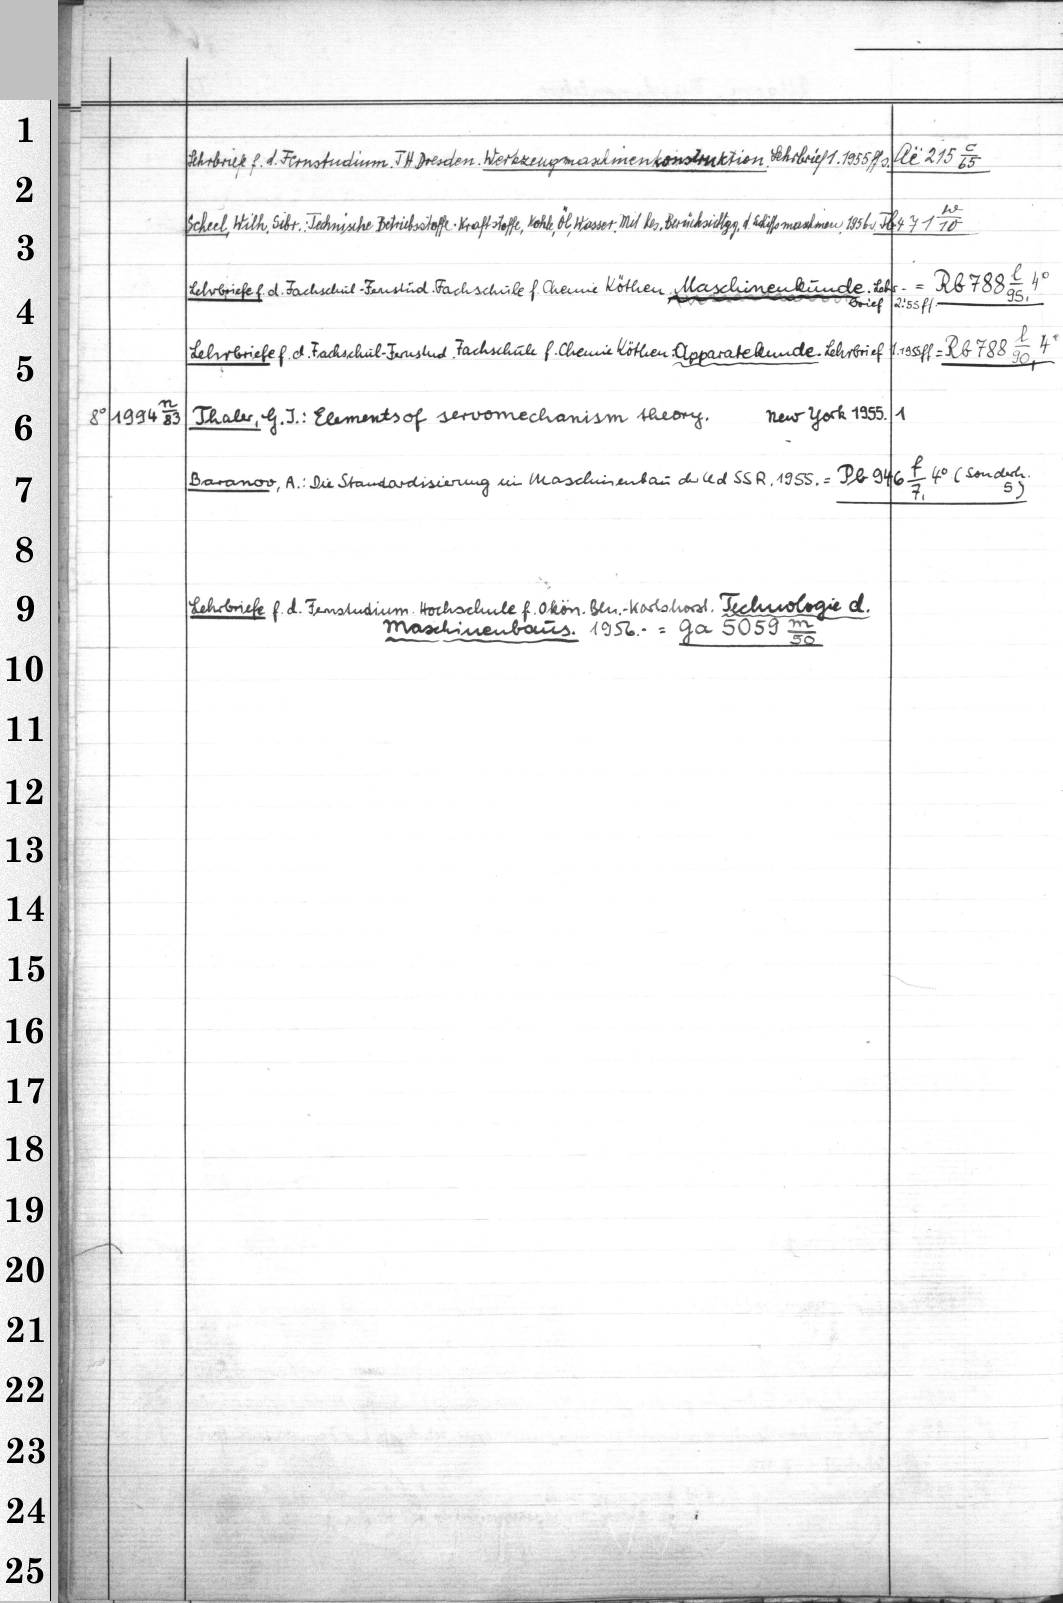 1
Lehrbriefe f. d. Fernstudium. TH Dresden. Werkzeugmaschinenkonstruktion. Lehrbrief 1. 1955 ff. Aë 215 c/65
2
Scheel, Wilh, Sibr.: Technische Betriebsstoffe. Kraftstoffe, Kohle, Öl, Wasser. Mit bes. Berücksichtgg. d. Schiffsmaschinen. 1956. 471 w/10
3
Lehrbriefe f. d. Fachschul-Fernstud. Fachschule f. Chemie Köthen. Maschinenkunde. Lehr- = Rb 788 l/95, 4°
brief 2.'55 ff
4
Lehrbriefe f. d. Fachschul-Fernstud. Fachschule f. Chemie Köthen: Apparatekunde. Lehrbrief 1. 1955 ff = Rb 788 l/90, 4°
5
6 8° 1994 n/83 Thaler, G. J.: Elements of servomechanism theory. New York 1955. 1
7 Baranov, A.: Die Standardisierung im Maschinenbau der UdSSR. 1955. = Pb 946 f/7, 4° (Sonderh.
5)
8
9 Lehrbriefe f. d. Fernstudium. Hochschule f. Ökon. Bln.-Karlshorst. Technologie d.
Maschinenbaus. 1956.- = Ga 5059 m/50
10
11
12
13
14
15
16
17
18
19
20
21
22
23
24
25